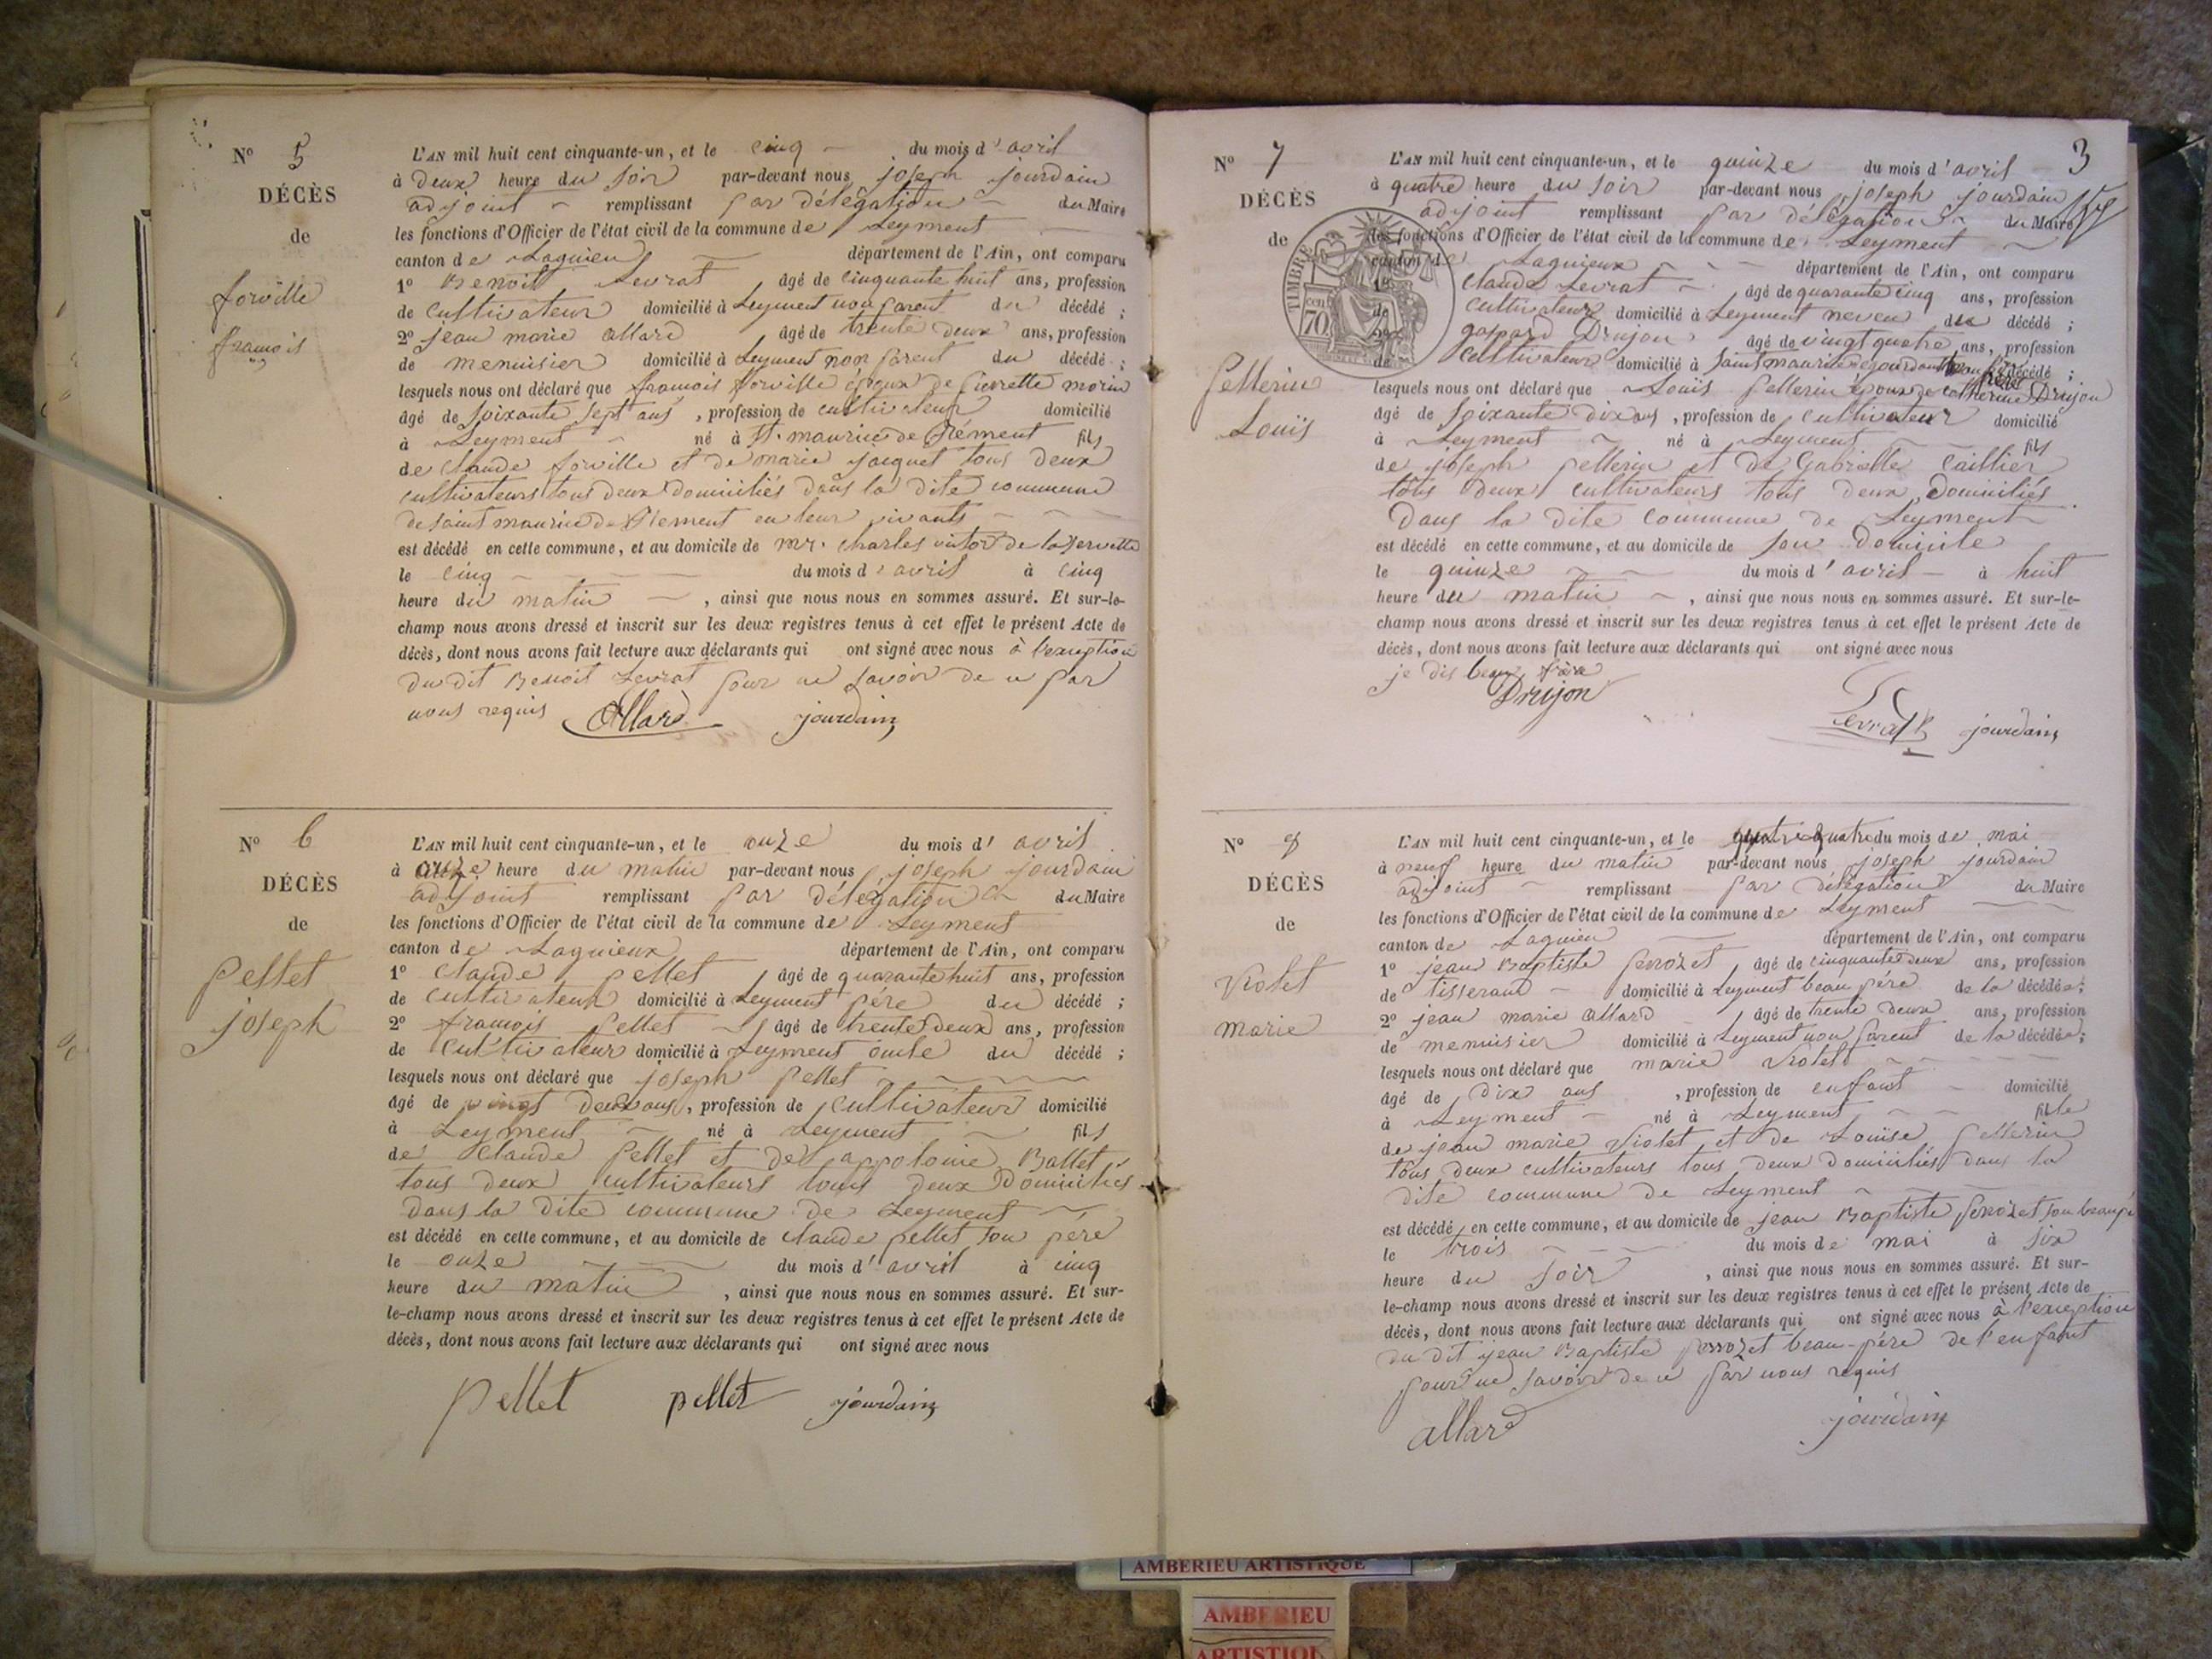 N° 5
DÉCÈS
de
forville
françois
L'AN mil huit cent cinquante-un, et le cinq du mois d'avril
à deux heure du soir par-devant nous joseph jourdain
adjoint remplissant par délégation du Maire
les fonctions d'Officier de l'état civil de la commune de Leyment
canton de Lagnieu département de l'Ain, ont comparu
1° Benoit Levrat âgé de cinquante huit ans, profession
de cultivateur domicilié à Leyment non parent du décédé ;
2° jean marie allard âgé de trente deux ans, profession
de menuisier domicilié à Leyment non parent du décédé ;
lesquels nous ont déclaré que françois forville époux de pierrette morin
âgé de soixante sept ans, profession de cultivateur domicilié
à Leyment né à St. maurice de Rément fils
de Claude forville et de marie jacquet tous deux
cultivateurs tous deux Domiciliés dans la dite commune
de saint maurice de Rement en leur vivants
est décédé en cette commune, et au domicile de mr. charles victor de laservette
le cinq du mois d'avril à cinq
heure du matin, ainsi que nous nous en sommes assuré. Et sur-le-
champ nous avons dressé et inscrit sur les deux registres tenus à cet effet le présent Acte de
décès, dont nous avons fait lecture aux déclarants qui ont signé avec nous à l'exception
du dit Benoit Levrat pour ne savoir de ce par
nous requis Allard jourdain
N° 6
DÉCÈS
de
pellet
joseph
L'AN mil huit cent cinquante-un, et le onze du mois d'avril
à onze heure du matin par-devant nous joseph jourdain
adjoint remplissant par délégation du Maire
les fonctions d'Officier de l'état civil de la commune de Leyment
canton de Lagnieux département de l'Ain, ont comparu
1° Claude pellet âgé de quarante huit ans, profession
de cultivateur domicilié à Leyment père du décédé ;
2° françois pellet âgé de trente deux ans, profession
de cultivateur domicilié à Leyment oncle du décédé ;
lesquels nous ont déclaré que joseph pellet
âgé de vingt deux ans, profession de cultivateur domicilié
à Leyment né à Leyment fils
de Claude pellet et de appolonie Ballet
tous deux cultivateurs tous deux Domiciliés
dans la dite commune de Leyment
est décédé en cette commune, et au domicile de claude pellet son père
le onze du mois d'avril à cinq
heure du matin, ainsi que nous nous en sommes assuré. Et sur-
le-champ nous avons dressé et inscrit sur les deux registres tenus à cet effet le présent Acte de
décès, dont nous avons fait lecture aux déclarants qui ont signé avec nous
pellet pellet jourdain
3
N° 7
DÉCÈS
de
pellerin
Louis
TIMBRE
cen
70
L'AN mil huit cent cinquante-un, et le quinze du mois d'avril
à quatre heure du soir par-devant nous joseph jourdain
adjoint remplissant par délégation du Maire
les fonctions d'Officier de l'état civil de la commune de Leyment
canton de Lagnieux département de l'Ain, ont comparu
1° Claude Levrat âgé de quarante cinq ans, profession
de cultivateur domicilié à Leyment neveu du décédé ;
2° gaspard Drujon âgé de vingt quatre ans, profession
de cultivateur domicilié à saint maurice de gourdans décédé ;
lesquels nous ont déclaré que Louis pellerin époux de catherine Drujon
âgé de soixante dix ans, profession de cultivateur domicilié
à Leyment né à Leyment fils
de joseph pellerin et de Gabrielle Caillier
tous deux cultivateurs tous deux Domiciliés
Dans la dite commune de Leyment
est décédé en cette commune, et au domicile de son domicile
le quinze du mois d'avril à huit
heure du matin, ainsi que nous nous en sommes assuré. Et sur-le-
champ nous avons dressé et inscrit sur les deux registres tenus à cet effet le présent Acte de
décès, dont nous avons fait lecture aux déclarants qui ont signé avec nous
je dis beau frère
Drujon Levrat jourdain
N° 8
DÉCÈS
de
violet
marie
L'AN mil huit cent cinquante-un, et le quatre du mois de mai
à neuf heure du matin par-devant nous joseph jourdain
adjoint remplissant par délégation du Maire
les fonctions d'Officier de l'état civil de la commune de Leyment
canton de Lagnieu département de l'Ain, ont comparu
1° jean Baptiste perrozet, âgé de cinquante deux ans, profession
de tisserand domicilié à Leyment beau père de la décédée ;
2° jean marie allard âgé de trente deux ans, profession
de menuisier domicilié à Leyment non parent de la décédée ;
lesquels nous ont déclaré que marie violet
âgé de dix ans, profession de enfant domicilié
à Leyment né à Leyment fille
de jean marie violet et de Louise pellerin
tous deux cultivateurs tous deux domiciliés dans la
dite commune de Leyment
est décédé en cette commune, et au domicile de jean Baptiste perrozet son beaupè
le trois du mois de mai à six
heure du soir, ainsi que nous nous en sommes assuré. Et sur-
le-champ nous avons dressé et inscrit sur les deux registres tenus à cet effet le présent Acte de
décès, dont nous avons fait lecture aux déclarants qui ont signé avec nous à l'exception
du dit jean Baptiste perrozet beau-père de l'enfant
pour ne savoir de ce par nous requis
allard jourdain
AMBERIEU ARTISTIQUE
AMBERIEU